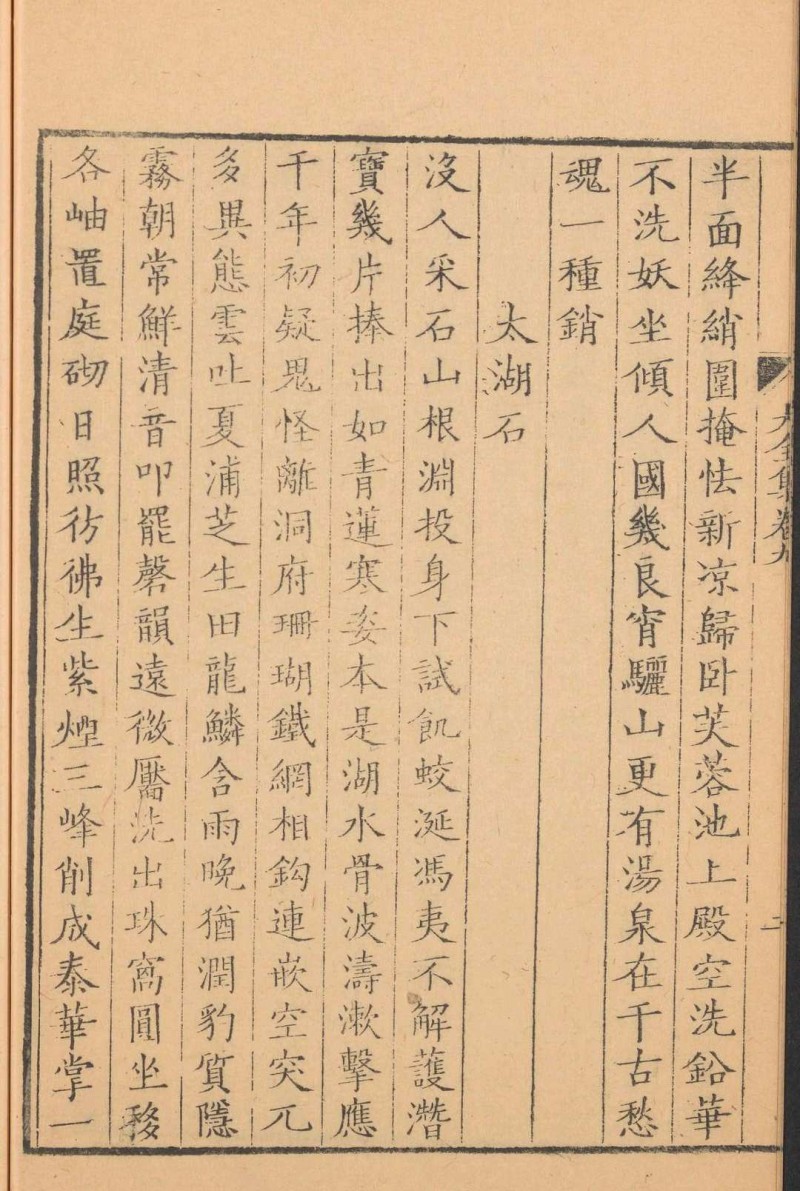 大全集卷九
半面絳綃圍掩怯新凉歸卧芙蓉池上殿空洗鉛華
不洗妖坐傾人國幾良宵驪山更有湯泉在千古愁
魂一種銷
太湖石
没人采石山根淵投身下試飢蛟涎馮夷不解護潛
寶幾片捧出如青蓮寒姿本是湖水骨波濤漱擊應
千年初疑鬼怪離洞府珊瑚鐵網相鈎連嵌空突兀
多異態雲吐夏浦芝生田龍鱗含雨晚猶潤豹質隱
霧朝常鮮清音叩罷磬韻遠微靨洗出珠窩圓坐移
各岫置庭砌日照彷彿生紫煙三峰削成泰華掌一